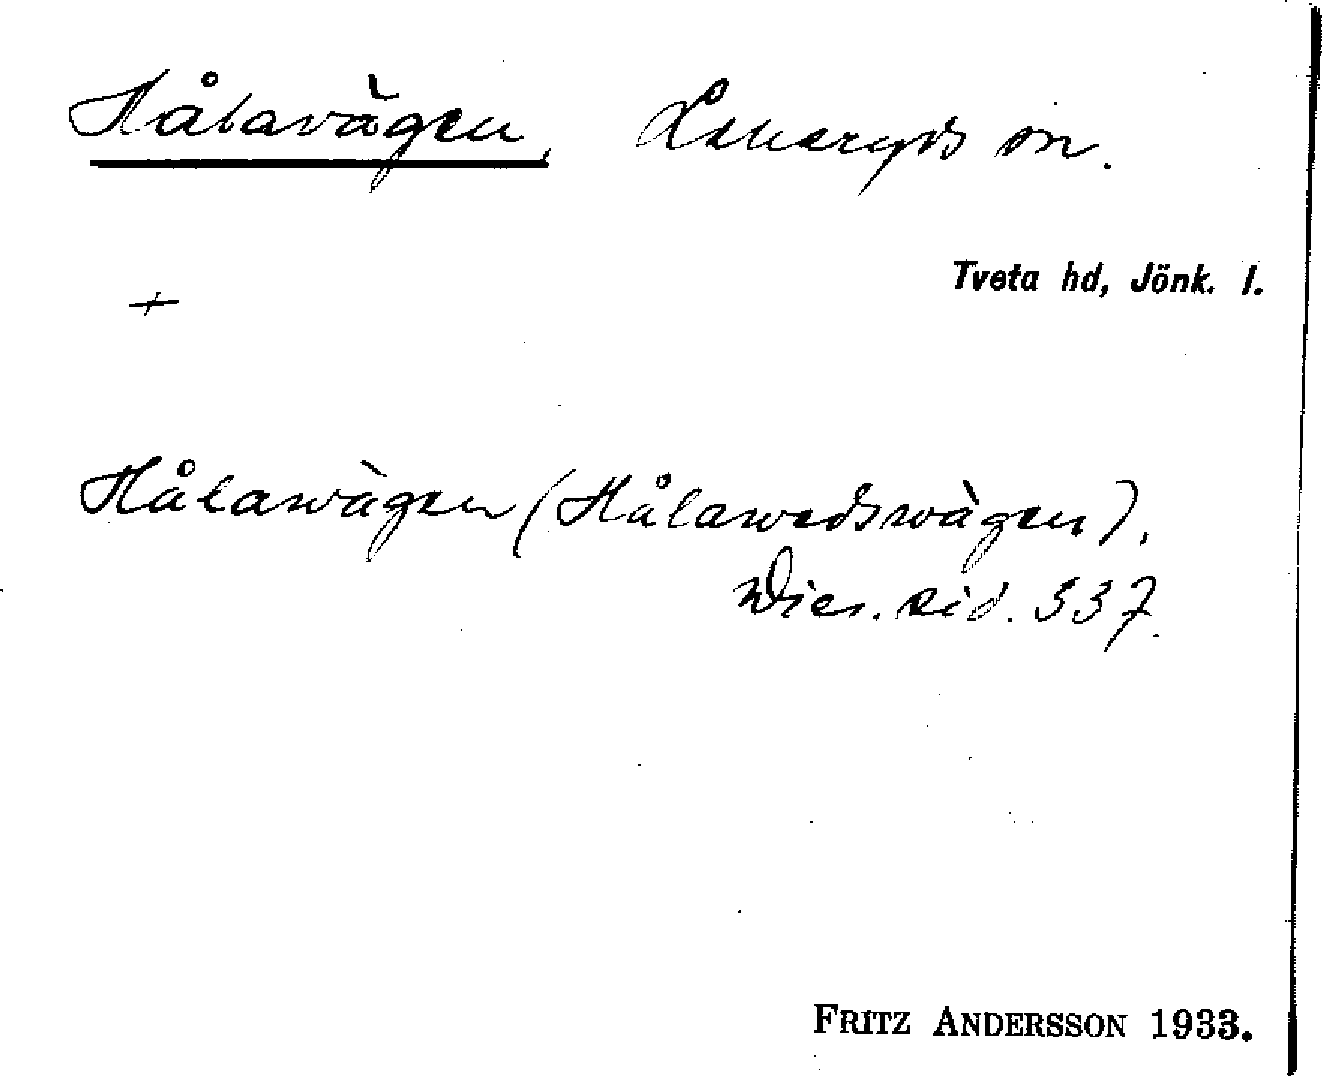 Hålavägen, Lekeryds sn.
Tveta hd, Jönk. l.
+
Hålawägen (Hålawedswägen).
Wies. sid. 537.
FRITZ ANDERSSON 1933.